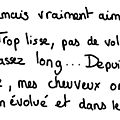 amais vraiment aim
Trop lisse, pas de vol
assez long... Depui
, mes cheveux on
n évolué et dans le